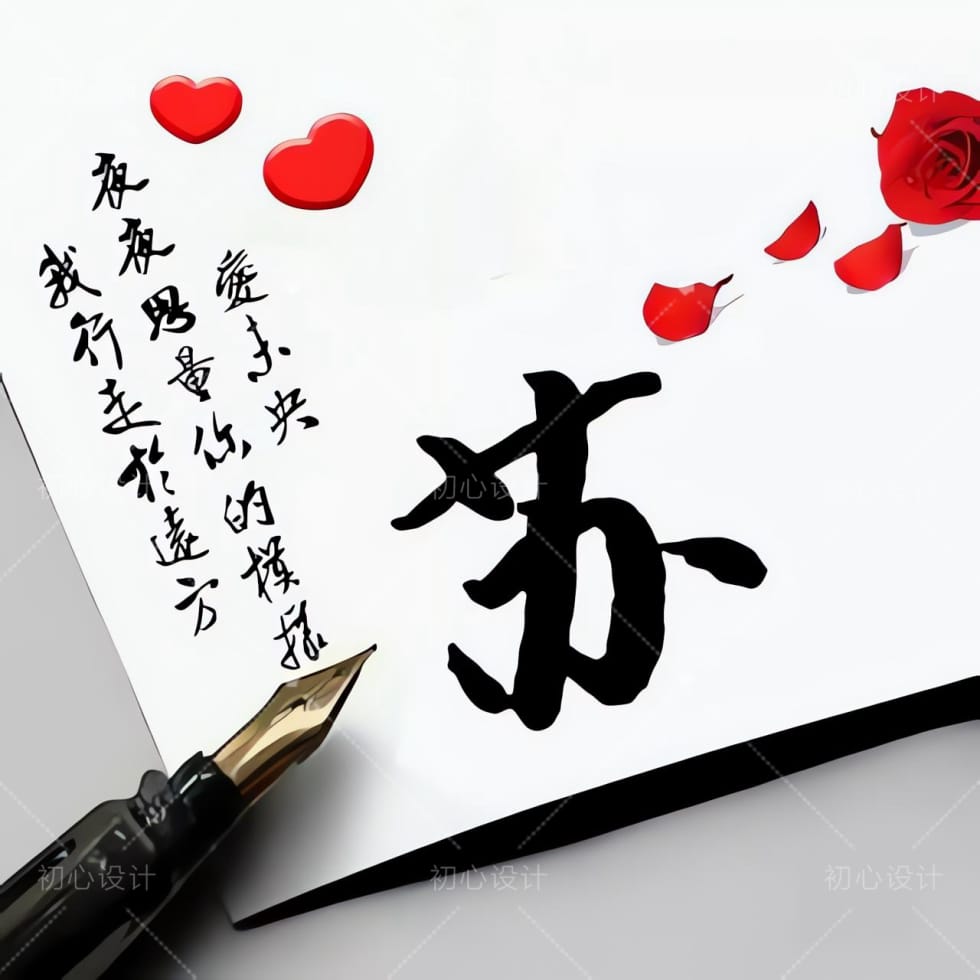 愛未央
夜夜思量你的模樣
我行走於遠方
苏
初心设计
初心设计
初心设计
初心设计
初心设计
初心设计